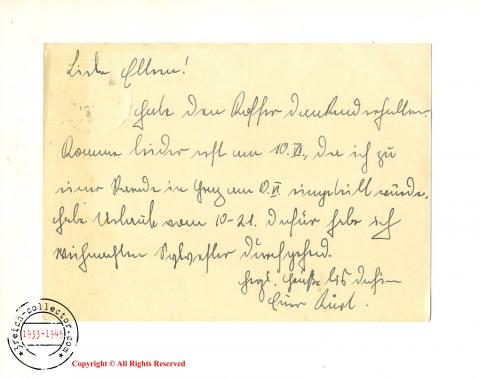 Liebe Eltern!
habe den Koffer dankend erhalten.
Komme leider erst am 10.XI., da ich zu
einer Parade in Graz am 9.XI eingeteilt wurde.
habe Urlaub vom 10-21. dafür habe ich
Weihnachten Sylvester durchgehend.
Herzl. Grüße bis dahin
Euer Kurt.
3reich-collector.com
1933-1945
Copyright © All Rights Reserved